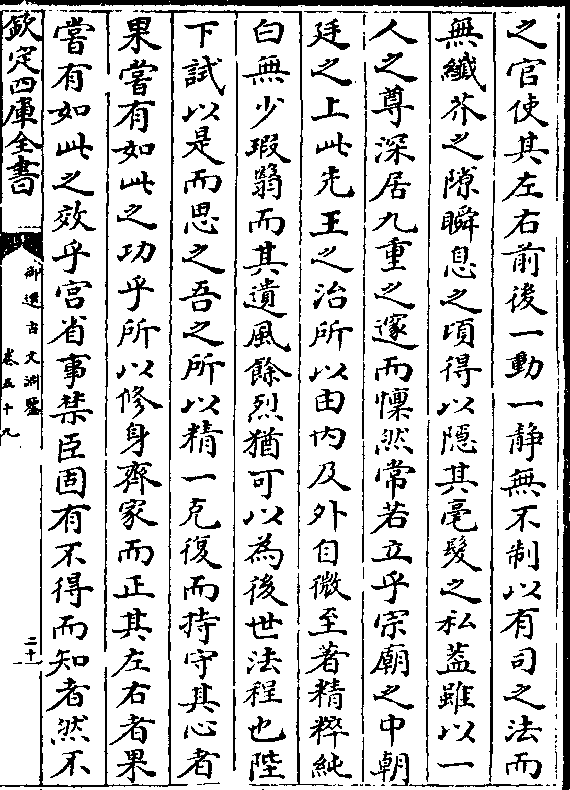 之官使其左右前後一動一靜無不制以有司之法而
無纖芥之隙瞬息之頃得以隱其毫髮之私蓋雖以一
人之尊深居九重之邃而懍然常若立乎宗廟之中朝
廷之上此先王之治所以由内及外自微至著精粹純
白無少瑕翳而其遺風餘烈猶可以為後世法程也陛
下試以是而思之吾之所以精一克復而持守其心者
果嘗有如此之功乎所以修身齊家而正其左右者果
嘗有如此之效乎宫省事禁臣固有不得而知者然不
欽定四庫全書
御選古文淵鑒
卷五十九
二十